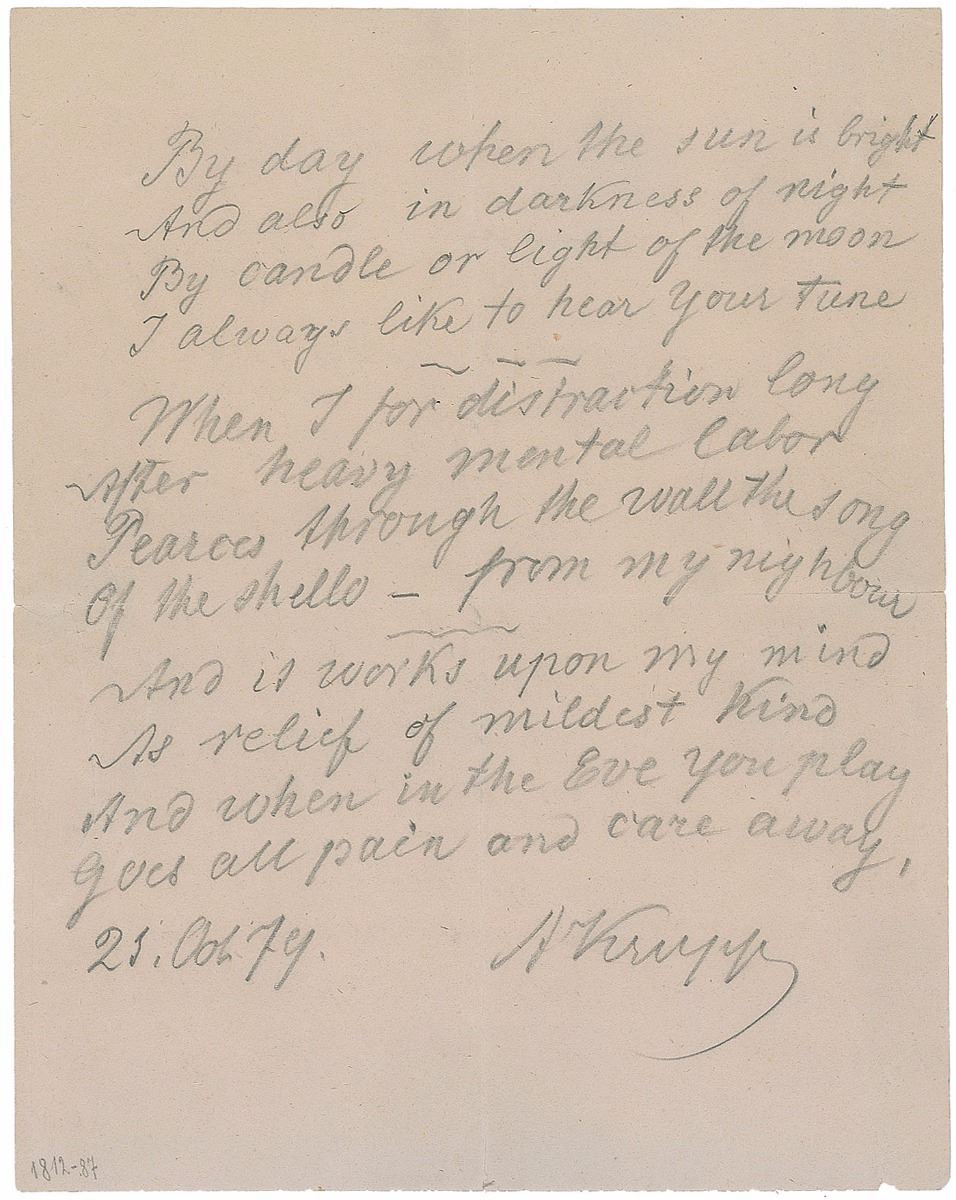 By day when the sun is bright
And also in darkness of night
By candle or light of the moon
I always like to hear your tune
When I for distraction long
After heavy mental labor
Pearces through the wall the song
Of the shello – from my nighbour
And it works upon my mind
As relief of mildest kind
And when in the Eve you play
Goes all pain and care away,
21. Oct. 79. A Krupp
1812-87